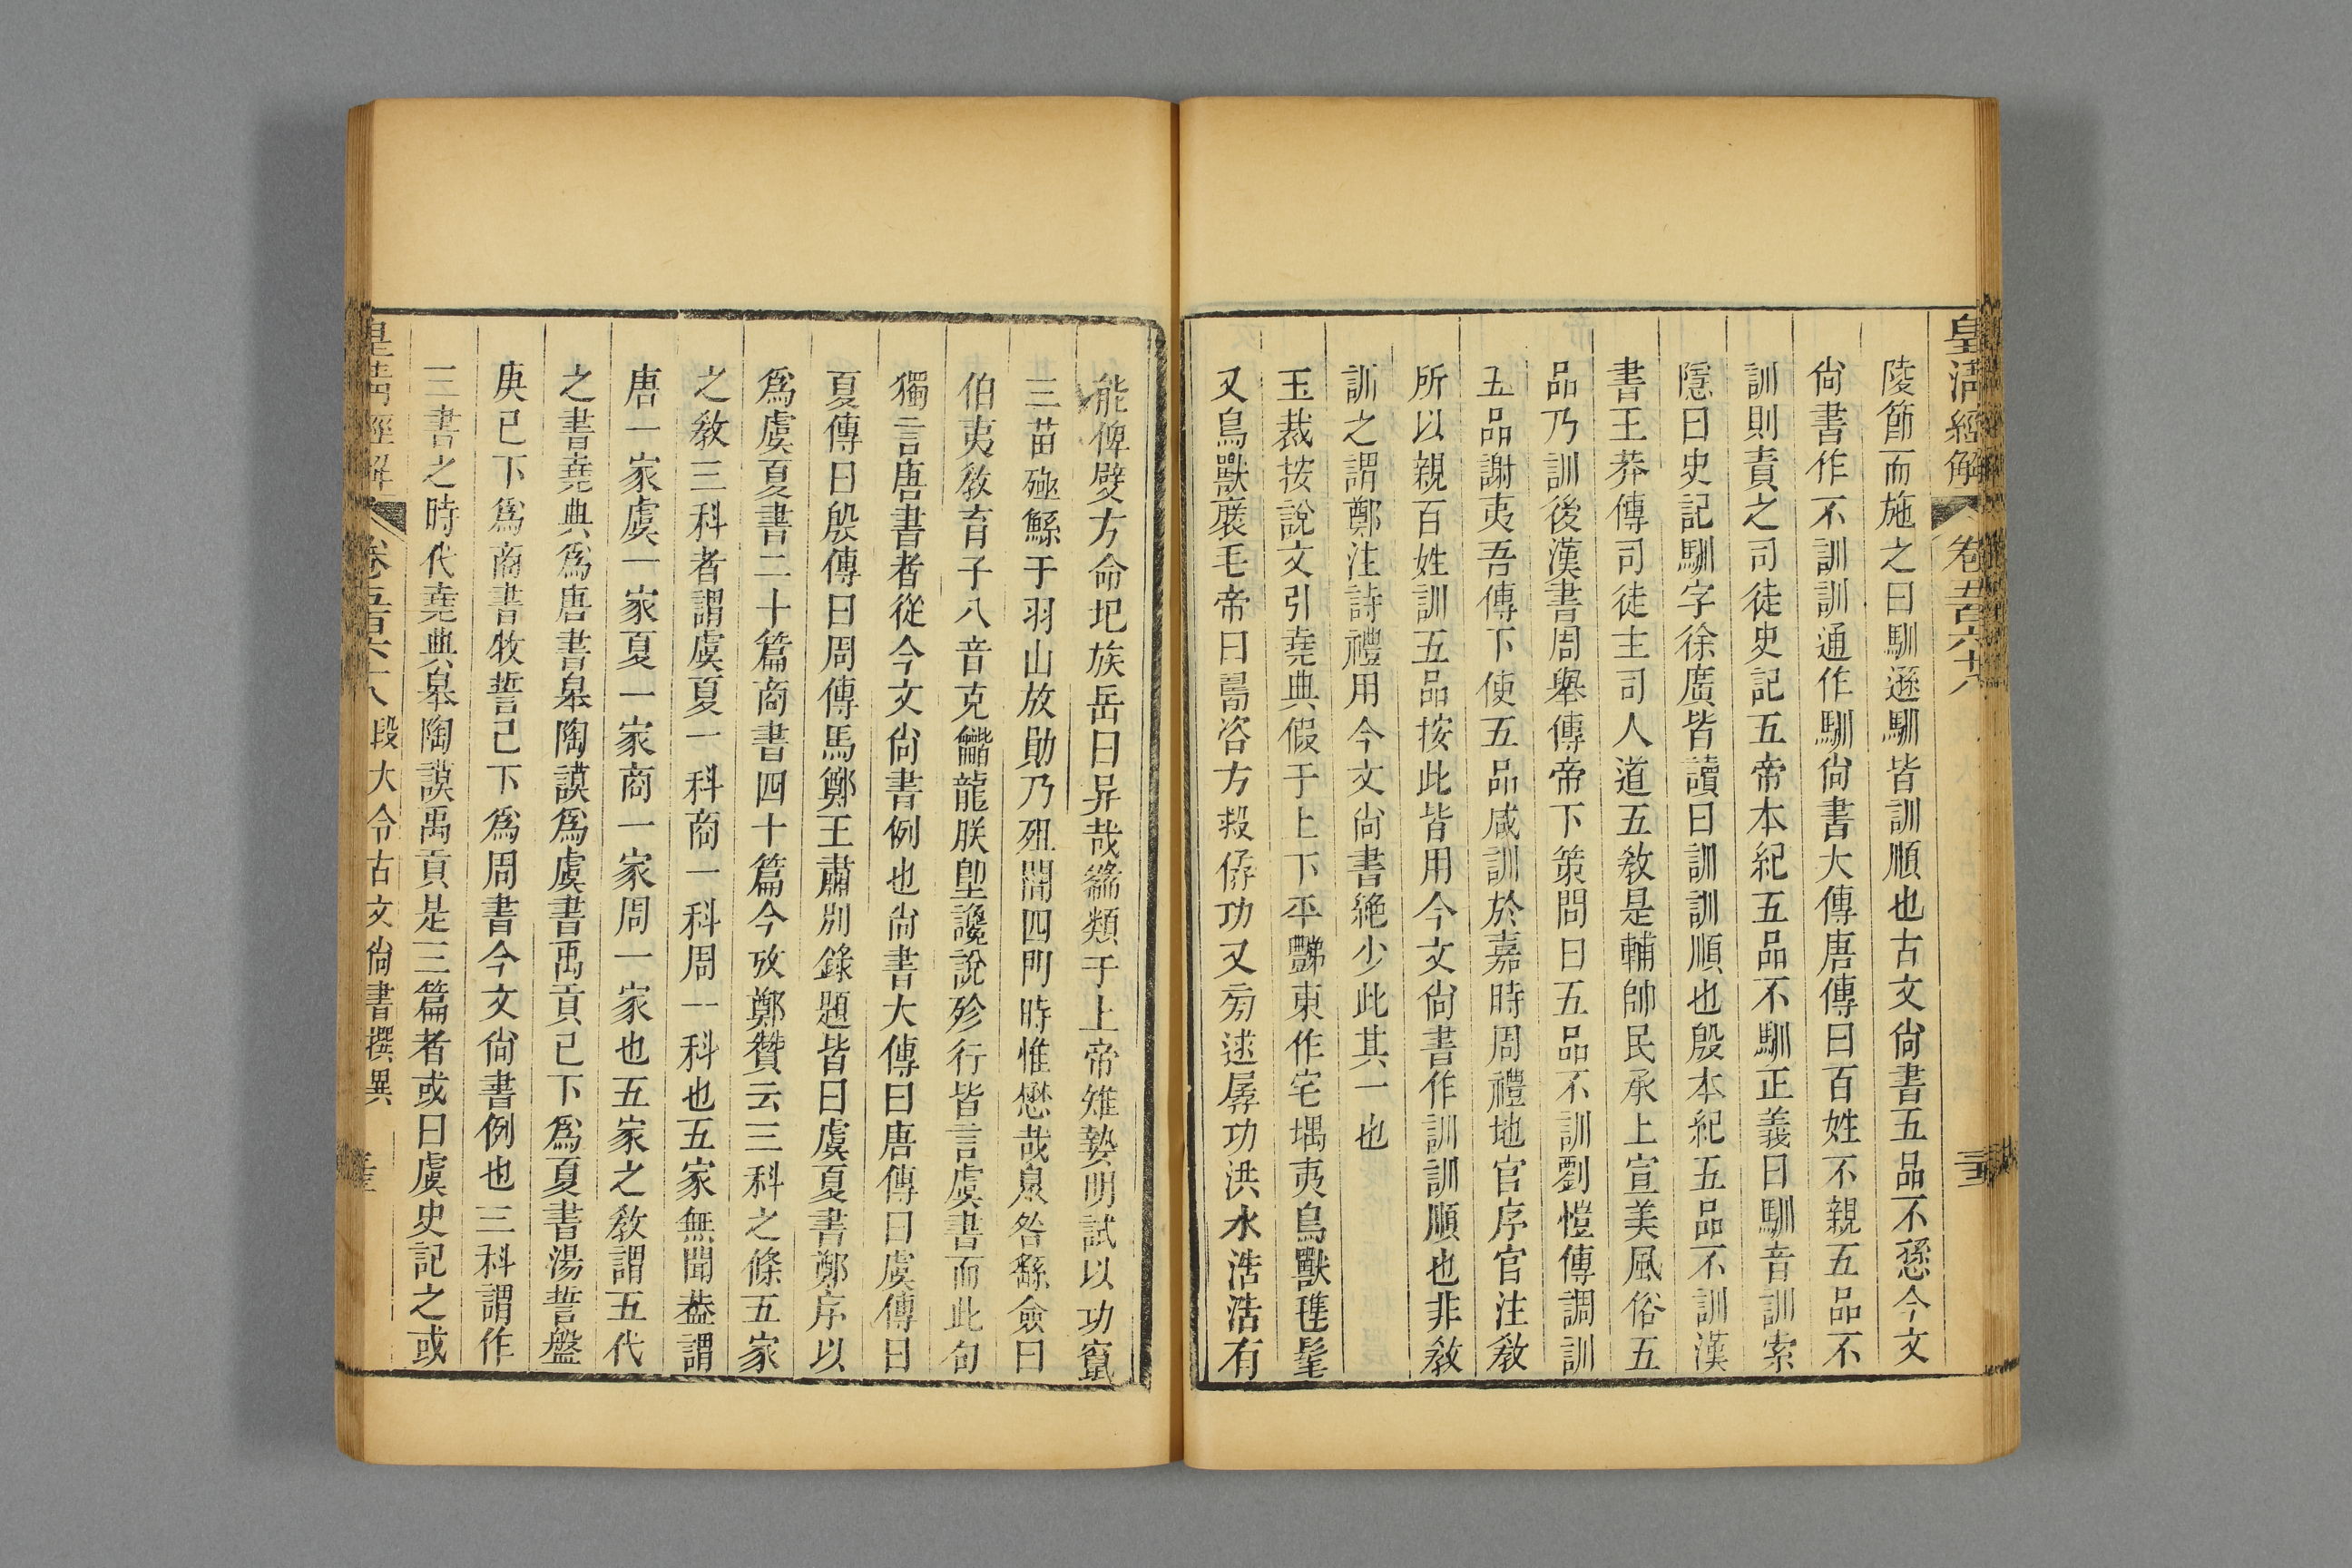 皇清經解 卷五百六十八
陵節而施之曰馴遜馴皆訓順也古文尙書五品不愻今文
尙書作不訓訓通作馴尙書大傳唐傳曰百姓不親五品不
訓則責之司徒史記五帝本紀五品不馴正義曰馴音訓索
隱曰史記馴字徐廣皆讀曰訓訓順也殷本紀五品不訓漢
書王莽傳司徒主司人道五敎是輔帥民承上宣美風俗五
品乃訓後漢書周舉傳帝下策問曰五品不訓劉愷傳調訓
五品謝夷吾傳下使五品咸訓於嘉時周禮地官序官注敎
所以親百姓訓五品按此皆用今文尙書作訓訓順也非敎
訓之謂鄭注詩禮用今文尙書絶少此其一也
玉裁按說文引堯典假于上下平豑東作宅堣夷鳥獸毨髦
又鳥獸褎毛帝曰𠷎咨方救僝功又㫄逑孱功洪水浩浩有
能俾嬖方命圯族岳曰异哉𥜽類于上帝雉摯明試以功竄
三苗殛鯀于羽山放勛乃殂闢四門時惟懋哉臮咎繇僉曰
伯夷敎育子八音克龤龍朕堲讒說殄行皆言虞書而此句
獨言唐書者從今文尙書例也尙書大傳曰唐傳曰虞傳曰
夏傳曰殷傳曰周傳馬鄭王肅別錄題皆曰虞夏書鄭序以
爲虞夏書二十篇商書四十篇今攷鄭贊云三科之條五家
之敎三科者謂虞夏一科商一科周一科也五家無聞葢謂
唐一家虞一家夏一家商一家周一家也五家之敎謂五代
之書堯典爲唐書皋陶謨爲虞書禹貢已下爲夏書湯誓盤
庚已下爲商書牧誓已下爲周書今文尙書例也三科謂作
三書之時代堯典皋陶謨禹貢是三篇者或曰虞史記之或
皇清經解 卷五百六十八 段大令古文尙書撰異